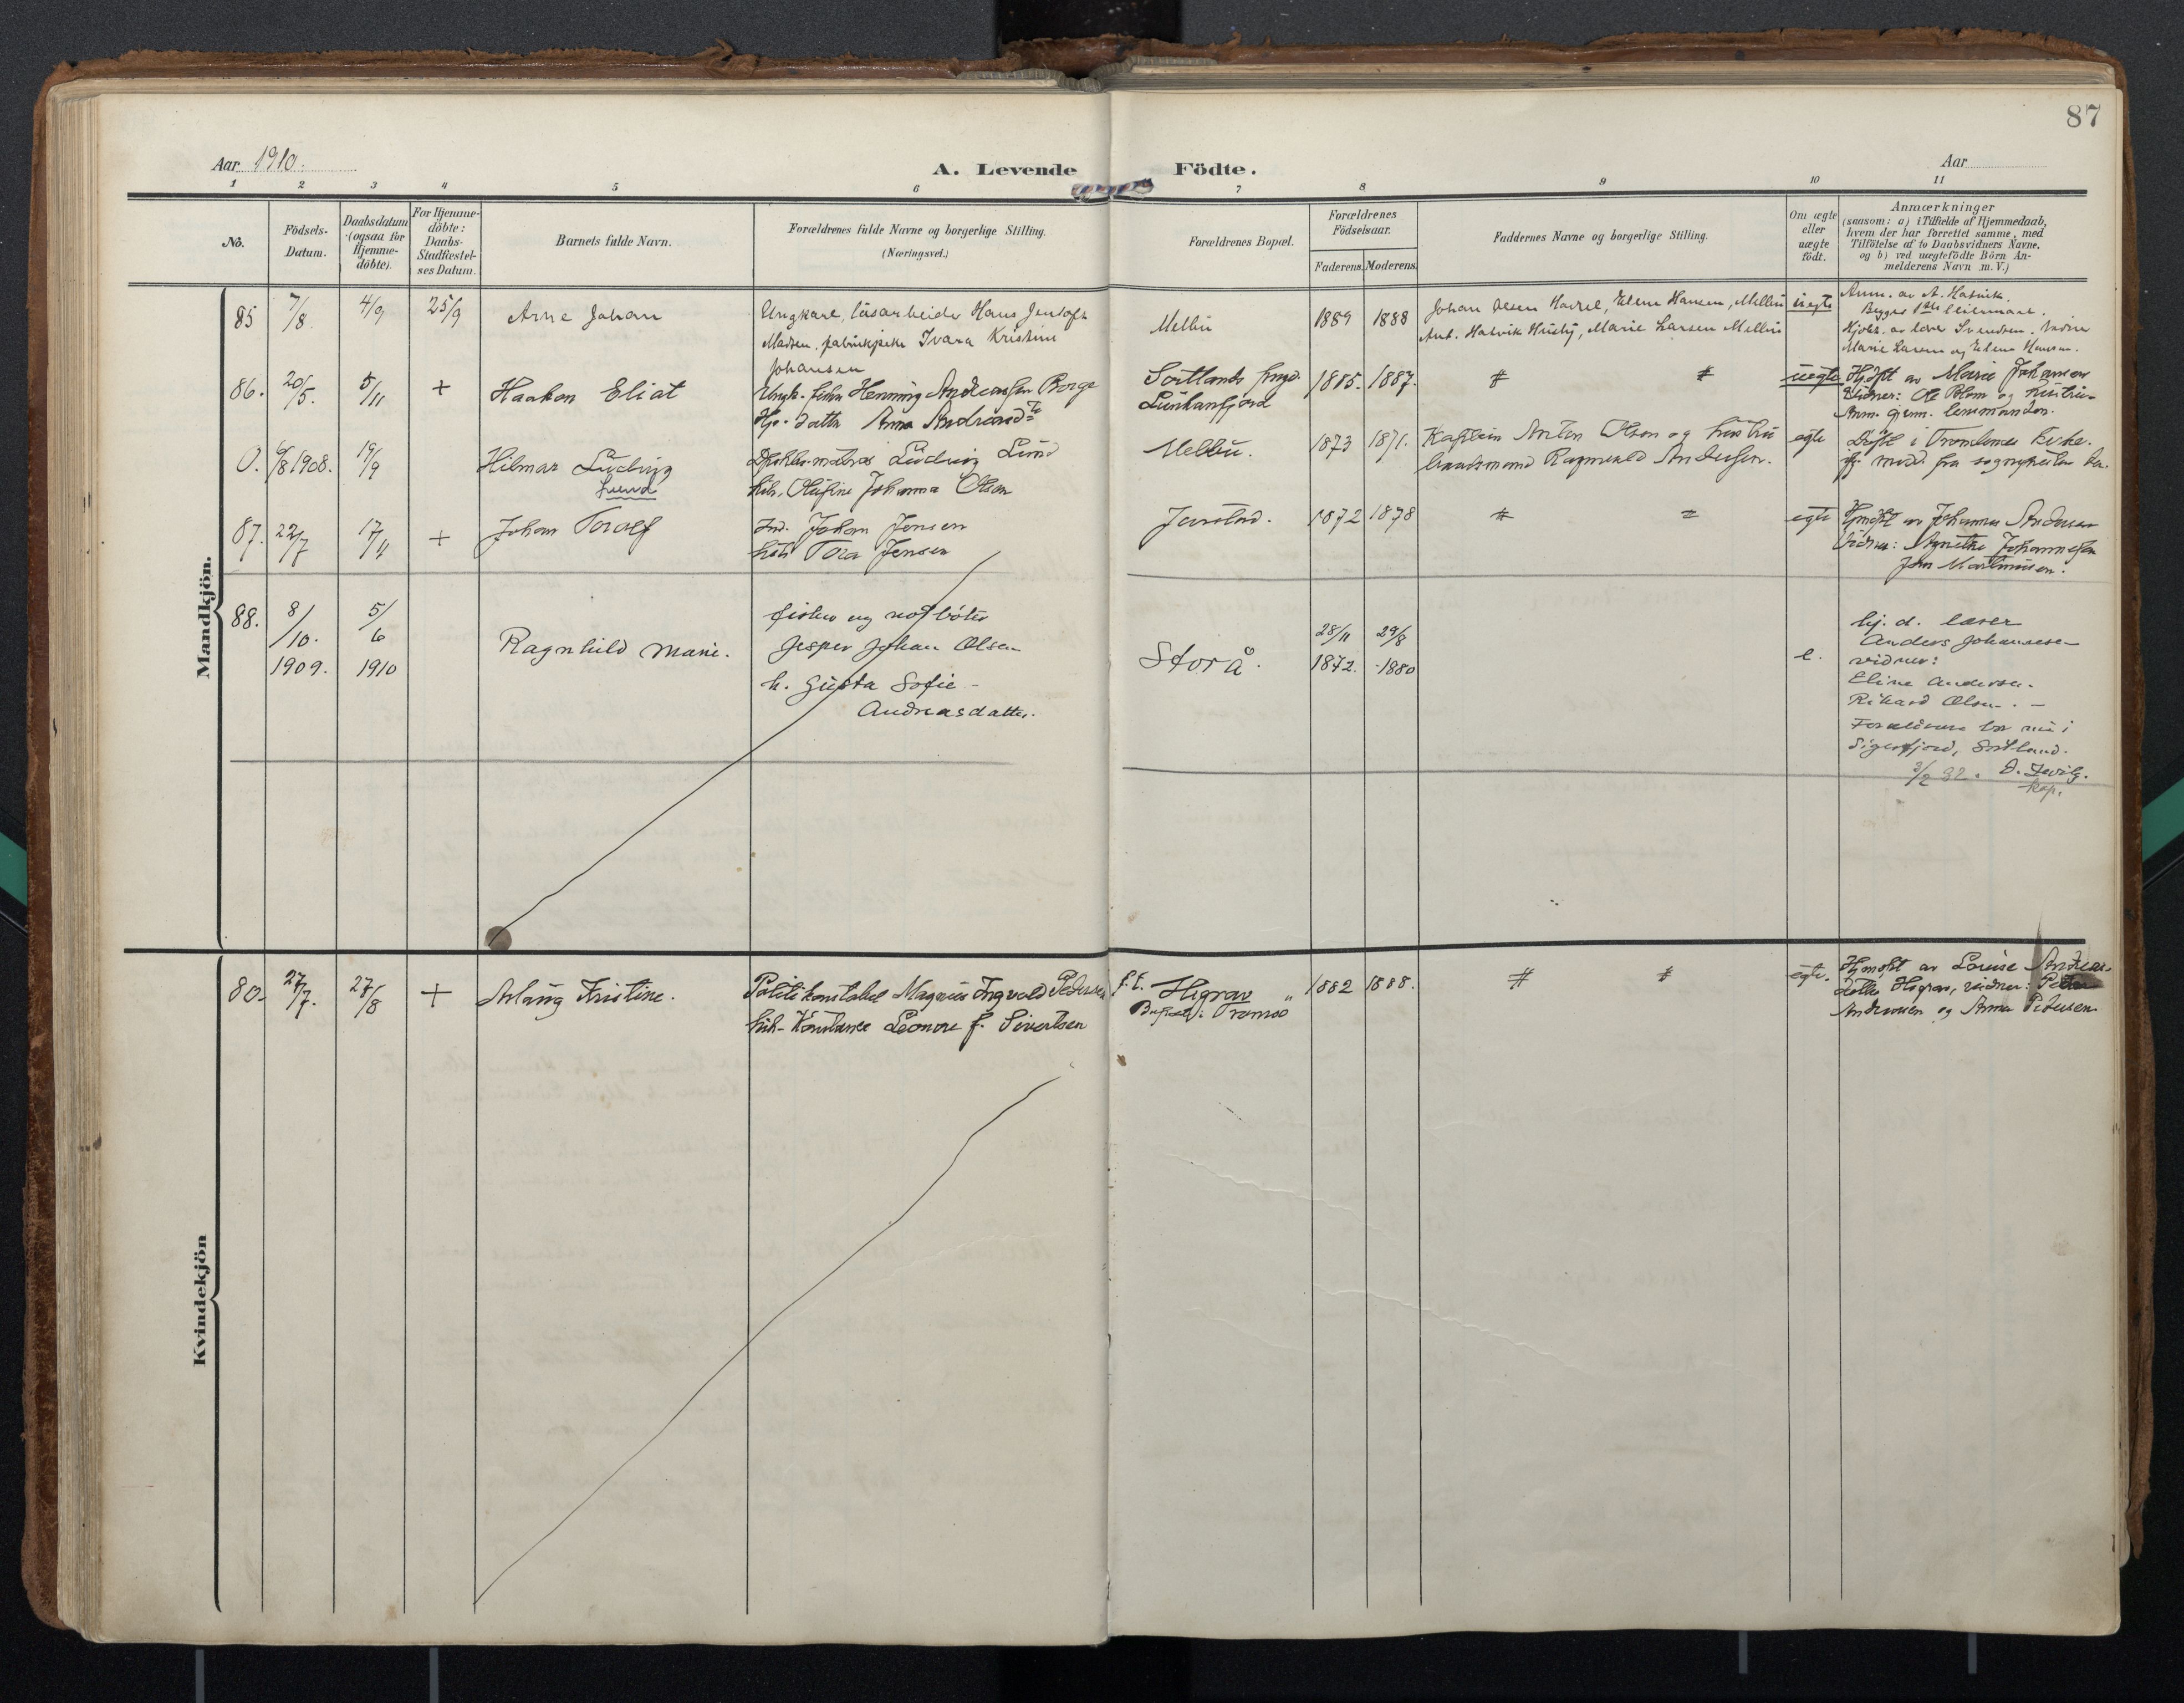 87
Aar 1910.
A. Levende Födte.
Aar
1 2 3 4 5 6 7 8 9 10 11
No.
Födsels-
Datum.
Daabsdatum
(ogsaa for
Hjemme-
döbte).
For Hjemme-
döbte:
Daabs-
Stadfæstel-
ses Datum.
Barnets fulde Navn.
Forældrenes fulde Navne og borgerlige Stilling.
(Næringsvei.)
Forældrenes Bopæl.
Forældrenes
Födselsaar.
Faderens. Moderens.
Faddernes Navne og borgerlige Stilling.
Om ægte
eller
uægte
födt.
Anmærkninger
(saasom: a) i Tilfælde af Hjemmedaab,
hvem der har forrettet samme, med
Tilföielse af to Daabsvidners Navne.
og b) ved uægtefödte Börn An-
melderens Navn m. V.)
Mandkjön.
85 7/8. 4/9 25/9 Arne Johan
Ungkarl, løsarbeider Hans Jentoft
Madsen, fabrikpike Ivara Kristine
Johansen
Melbu 1889 1888
Johan Olsen Hadsel, Elene Hansen, Melbu
Ant. Hatvik Husby, Marie Larsen Melbu
uegte
Anm. av A. Hatvik.
Begges 1ste leiermaal.
Hjdøbt. av lærer Svendsen. Vidner
Marie Larsen og Elene Hansen.
86. 20/5. 5/11 + Haakon Eliat
Ungk. fisker Henning Andreassen Borge
Hjv. datter Anna Andreasdtr
Sortlands
1885. 1887. # # uegte
Hjdøbt av Marie Johansen
Vidner: Ole Blom og hustru
Anm. gjenn. lensmanden.
0. 6/8 1908. 19/9 Hilmar Ludvig
Lund
Ludvig Lund
hstr. Olufine Johanna Olsen
Melbu. 1873 1871.
Kaptein Anton Olsen og hustru
Ragnvald Andersen.
egte
Døbt i Tromsøens kirke.
fra sognepresten der.
87. 22/7 17/11 + Johan Toralf
Ind. Johan Jensen
hstr Tora Jensen
Jennstad. 1872 1878 # = egte
Hjmdøbt av Johanna Andersen
Vidner: Agnethe Johannessen
John Martinussen.
88. 8/10. 1909. 5/6 1910 Ragnhild Marie.
fisker og notbøter
Jesper Johan Olsen
h. Gusta Sofie
Andreasdatter.
Storå. 28/11 1872. 29/8 1880 e.
hj. d. læser
Anders Johansen
vidner:
Eline Andersen.
Rikard Olsen. –
Forældrene bor nu i
Sigerfjord, Sortland.
3/2 32.
kap.
Kvindekjön
80. 27/7. 27/8 + Aslaug Kristine.
Politikonstabel Magnus Ingvald Pedersen
hstr. Konstance Leonore f. Sivertsen
f.t. Higrav
Tromsø
1882 1888. # # egte.
Hjmdøbt av Louise Andreas-
datter Higrav, vidner: Peder
Andreassen og Anna Pedersen.